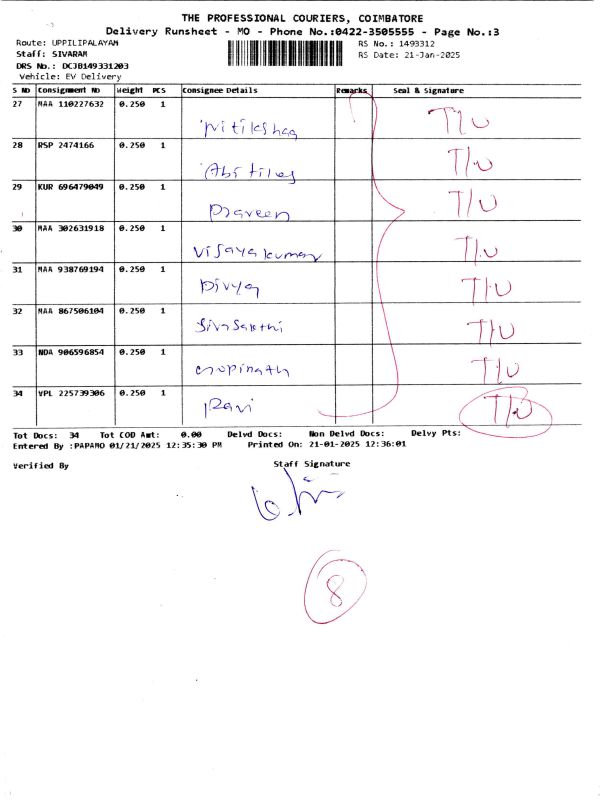 THE PROFESSIONAL COURIERS, COIMBATORE
Delivery Runsheet - MO - Phone No.:0422-3505555 - Page No.:3
Route: UPPILIPALAYAM
RS No.: 1493312
Staff: SIVARAM
RS Date: 21-Jan-2025
DRS No.: DCJB149331203
Vehicle: EV Delivery
S No Consignment No Weight PCS Consignee Details Remarks Seal & Signature
27 MAA 110227632 0.250 1
Nitikshaa T/U
28 RSP 2474166 0.250 1
T/U
29 KUR 696479049 0.250 1
Praveen T/U
30 MAA 302631918 0.250 1
Vijayakumar T/U
31 MAA 938769194 0.250 1
Divya T/U
32 MAA 867506104 0.250 1
Sivasakthi T/U
33 NDA 906596854 0.250 1
Gopinath T/U
34 VPL 225739306 0.250 1
Ravi T/U
Tot Docs: 34 Tot COD Amt: 0.00 Delvd Docs: Non Delvd Docs: Delvy Pts:
Entered By :PAPAMO 01/21/2025 12:35:30 PM Printed On: 21-01-2025 12:36:01
Verified By Staff Signature
8